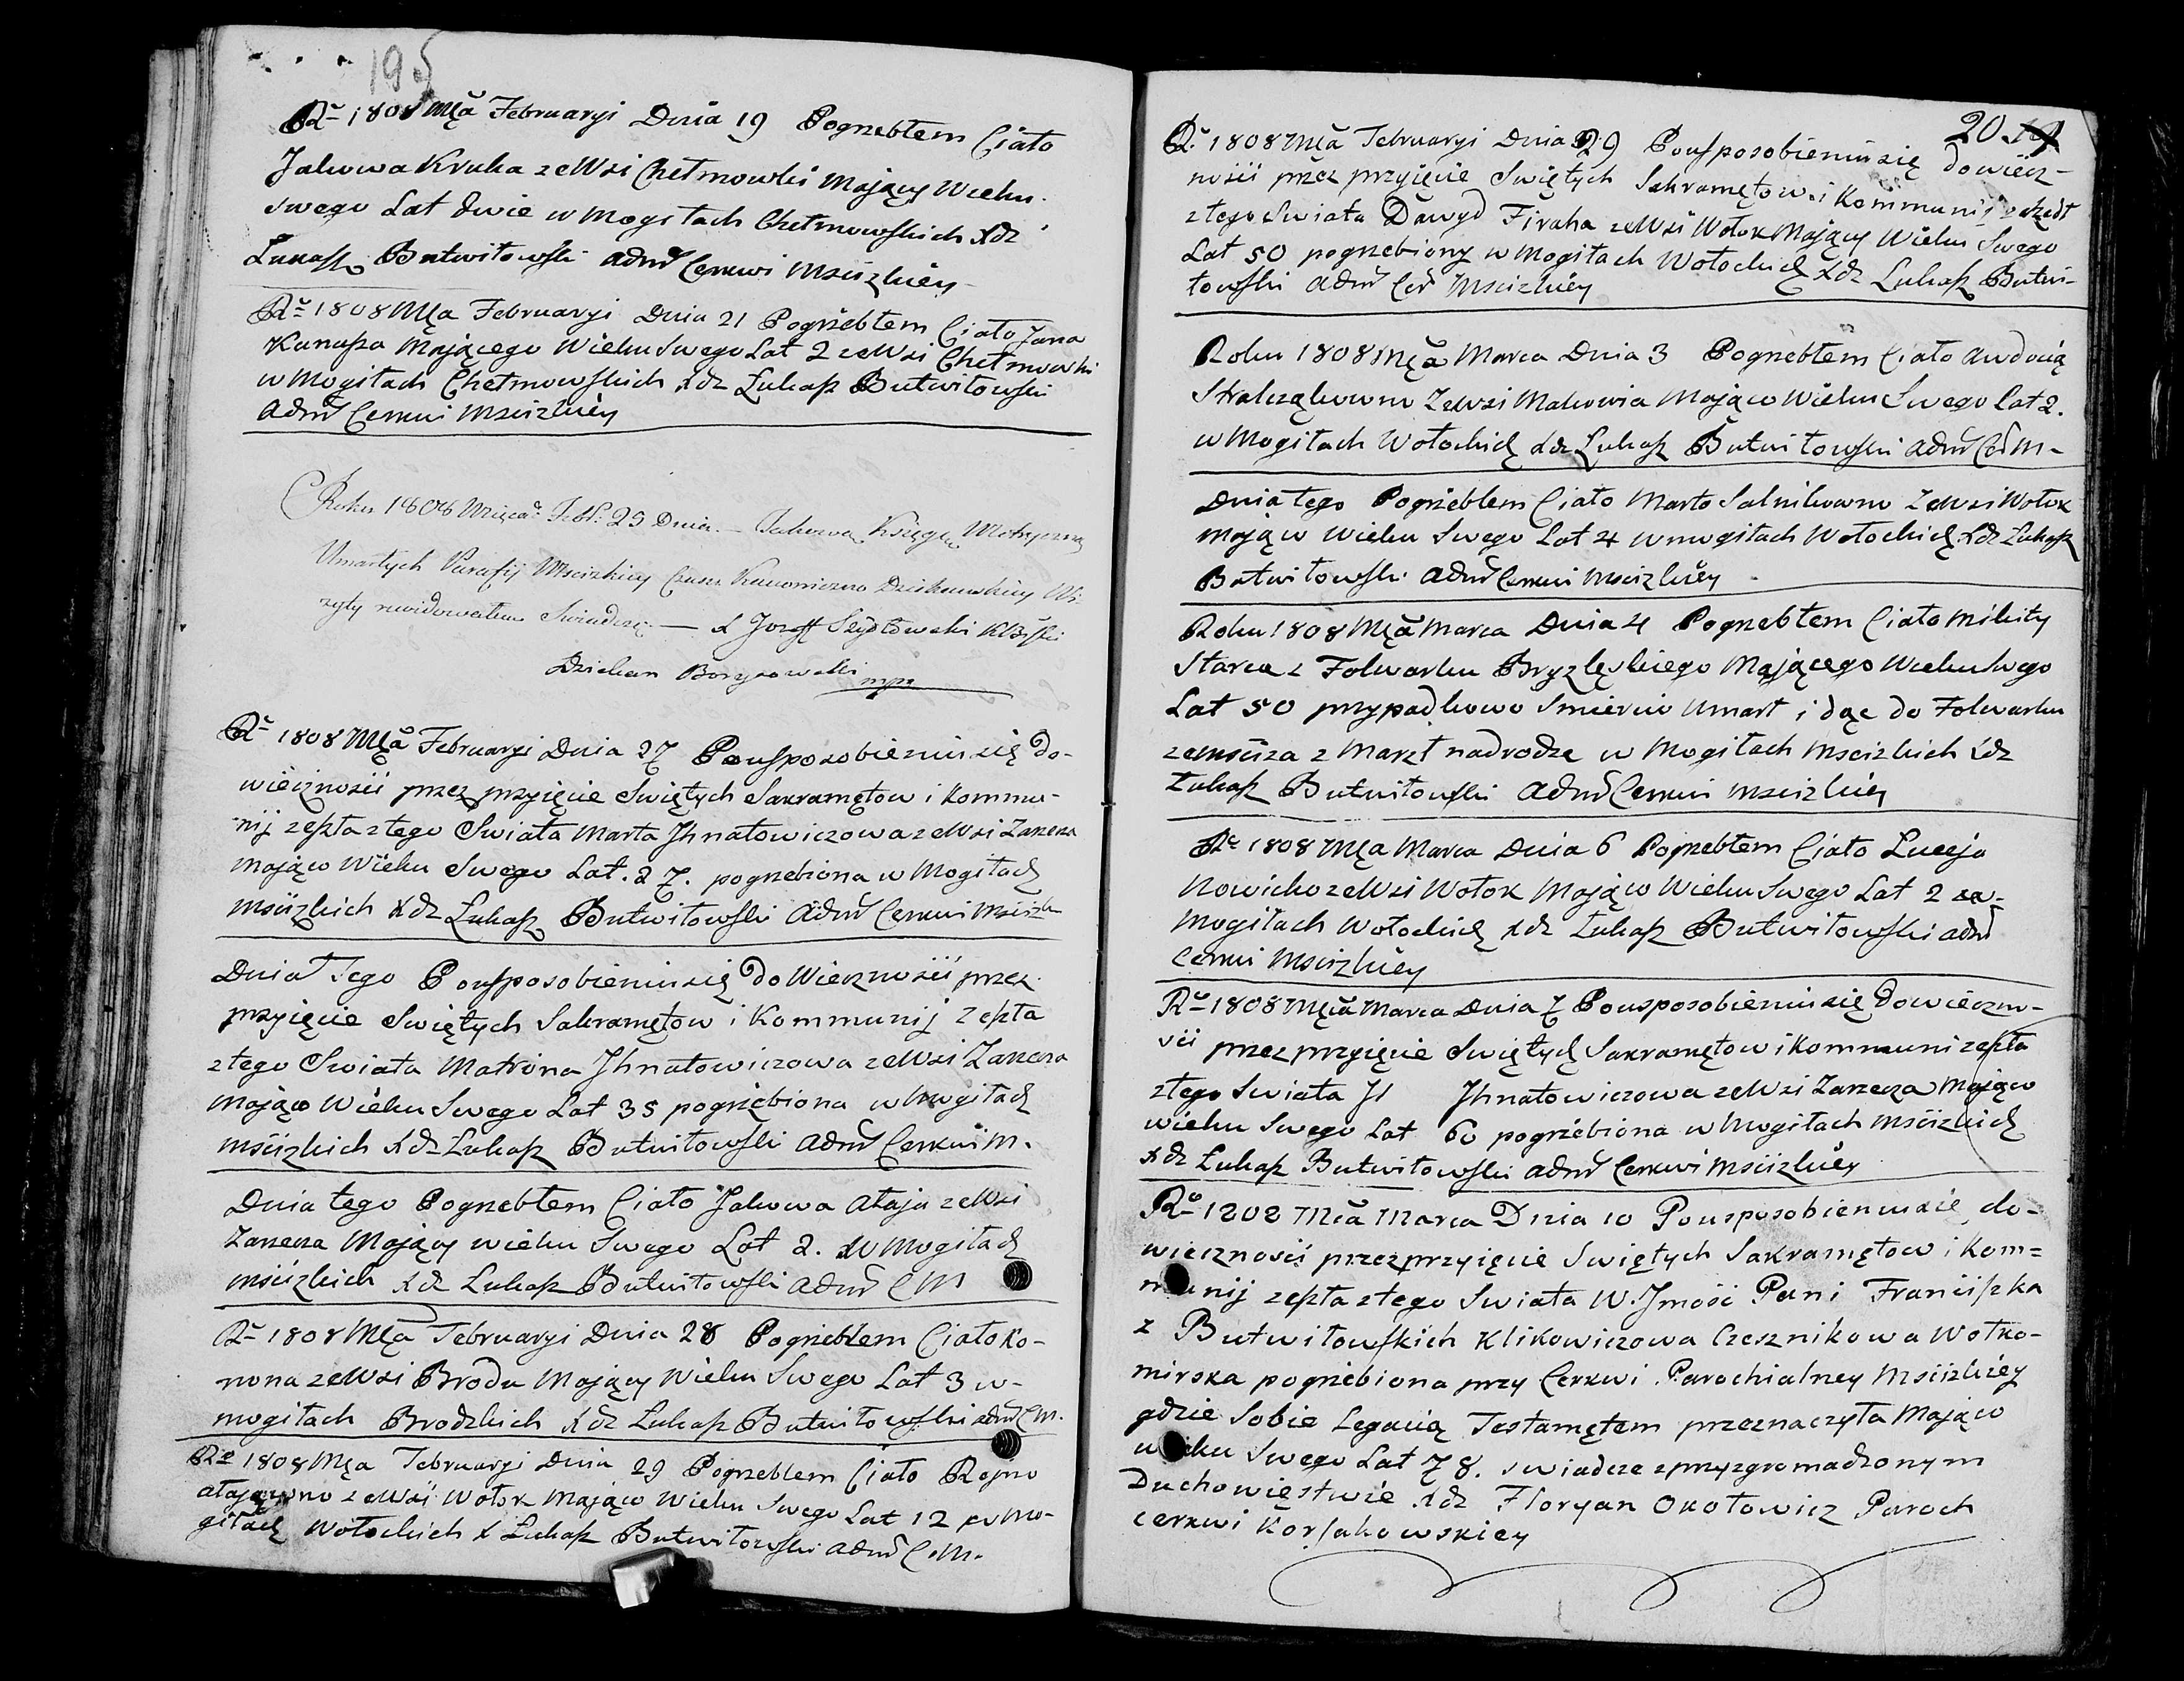 195
Rº 1808 Mca Februaryi Dnia 19 Pogrzebłem Ciało
Jakowa Kruka ze Wsi Chełmowki Maiący Wieku
swego Lat dwie w Mogiłach Chełmowskich Xdz
Łukasz Butwiłowski Admr Cerkwi Msciżkiey
Rº 1808 Mca Februaryi Dnia 21 Pogrzebłem Ciało Jana
Kunasza Maiącego Wieku Swego Lat 2 ze Wsi Chełmowki
w Mogiłach Chełmowskich Xdz Łukasz Butwiłowski
Admr Cerkwi Msciżkiey
Roku 1808 Mięca Febr: 25 Dnia — Takową Księgę Metryczną
Umarłych Parafij Msciżkiey Czasu Dziekańskiey Wi-
zyty rewidowałem Swiadczę — X Jozeff Szydłowski
Dziekan Borysowski mpr
Rº 1808 Mca Februaryi Dnia 27 Pousposobieniu się do-
wiecznosii przez przyięcie Swiętych Sakramętow i Kommu-
nij zeszła z tego Swiata Marta Jhnatowiczowa ze Wsi Zarzecza
maiąco Wieku Swego Lat. 27. pogrzebiona w Mogiłach
Msciżkich Xdz Łukasz Butwiłowski Admr Cerkwi Msciżk
Dnia Tego Pousposobieniu się do Wiecznosii przez
przyięcie Swiętych Sakramętow i Kommunij zeszła
z tego Swiata Matrona Jhnatowiczowa ze Wsi Zarzecza
Maiąco Wieku Swego Lat 35 pogrzebiona w Mogiłach
Msciżkich Xdz Łukasz Butwiłowski Admr Cerkwi M.
Dnia tego Pogrzebłem Ciało Jakowa Ataja ze Wsi
Zarzecza Maiący wieku Swego Lat 2. w Mogiłach
Msciżkich Xdz Łukasz Butwiłowski Admr C M
Rº 1808 Mca Februaryi Dnia 28 Pogrzebłem Ciało Ko-
nona ze Wsi Brodu Maiący Wieku Swego Lat 3 w-
mogiłach Brodzkich Xdz Łukasz Butwiłowski Admr C M.
Rº 1808 Mca Februaryi Dnia 29 Pogrzebłem Ciało
ze Wsi Wołok Maiąco Wieku Swego Lat 12 w Mo-
giłach Wołockich X Łukasz Butwiłowski Admr C. M.
20 19
Rº 1808 Mca Februaryi Dnia 29 Pousposobieniu się dowiecz-
nosii przez przyięcie Swiętych Sakramętow i Kommunij zeszedł
z tego Swiata Dawyd Firaha ze Wsi Wołok Maiący Wieku Swego
Lat 50 pogrzebiony w Mogiłach Wołockich Xdz Łukasz Butwi-
łowski Admr Cer Msciżkiey
Roku 1808 Mca Marca Dnia 3 Pogrzebłem Ciało Awdocią
ze Wsi Makowia Maiąco Wieku Swego Lat 2.
w Mogiłach Wołockich Xdz Łukasz Butwiłowski Admr Cer M-
Dnia tego Pogrzebłem Ciało Marto Salnikowno ze Wsi Wołok
Maiąco Wieku Swego Lat 4 w mogiłach Wołockich Xdz Łukasz
Butwiłowski Admr Cerkwi Msciżkiey
Roku 1808 Mca Marca Dnia 4 Pogrzebłem Ciało Mikity
Starca z Folwarku Bryzlęskiego Maiącego Wieku Swego
Lat 50 przypadkowo Smiercio Umarł idąc do Folwarku
ze Msciża zmarzł nadrodze w Mogiłach Msciżkich Xdz
Łukasz Butwiłowski Admr Cerkwi Msciżkiey
Rº 1808 Mca Marca Dnia 6 Pogrzebłem Ciało Lucyją
Nowicko ze Wsi Wołok Maiąco Wieku Swego Lat 2 w-
Mogiłach Wołockich Xdz Łukasz Butwiłowski Admr
Cerkwi Msciżkiey
Rº 1808 Mca Marca Dnia 7 Pousposobieniu się dowieczno-
sii przez przyięcie Swiętych Sakramętow i Kommuni zeszła
z tego Swiata Jl Jhnatowiczowa ze Wsi Zarzecza Maiąco
wieku Swego Lat 60 pogrzebiona w Mogiłach Msciżkich
Xdz Łukasz Butwiłowski Admr Cerkwi Msciżkiey
Rº 1808 Mca Marca Dnia 10 Pousposobieniu się do-
wiecznosii przez przyięcie Swiętych Sakramętow i Kom=
munij zeszła z tego Swiata W. Jmość Pani Franciszka
z Butwiłowskich Klikowiczowa Czesznikowa Wołko-
mirska pogrzebiona przy Cerkwi Parochialney Msciżkiey
gdzie Sobie Legacią Testamętem przeznaczyła Maiąco
wieku Swego Lat 78. swiadcze z przyzgromadzonym
Duchowięstwie Xdz Floryan Okołowicz Paroch
cerkwi Korsakowskiey